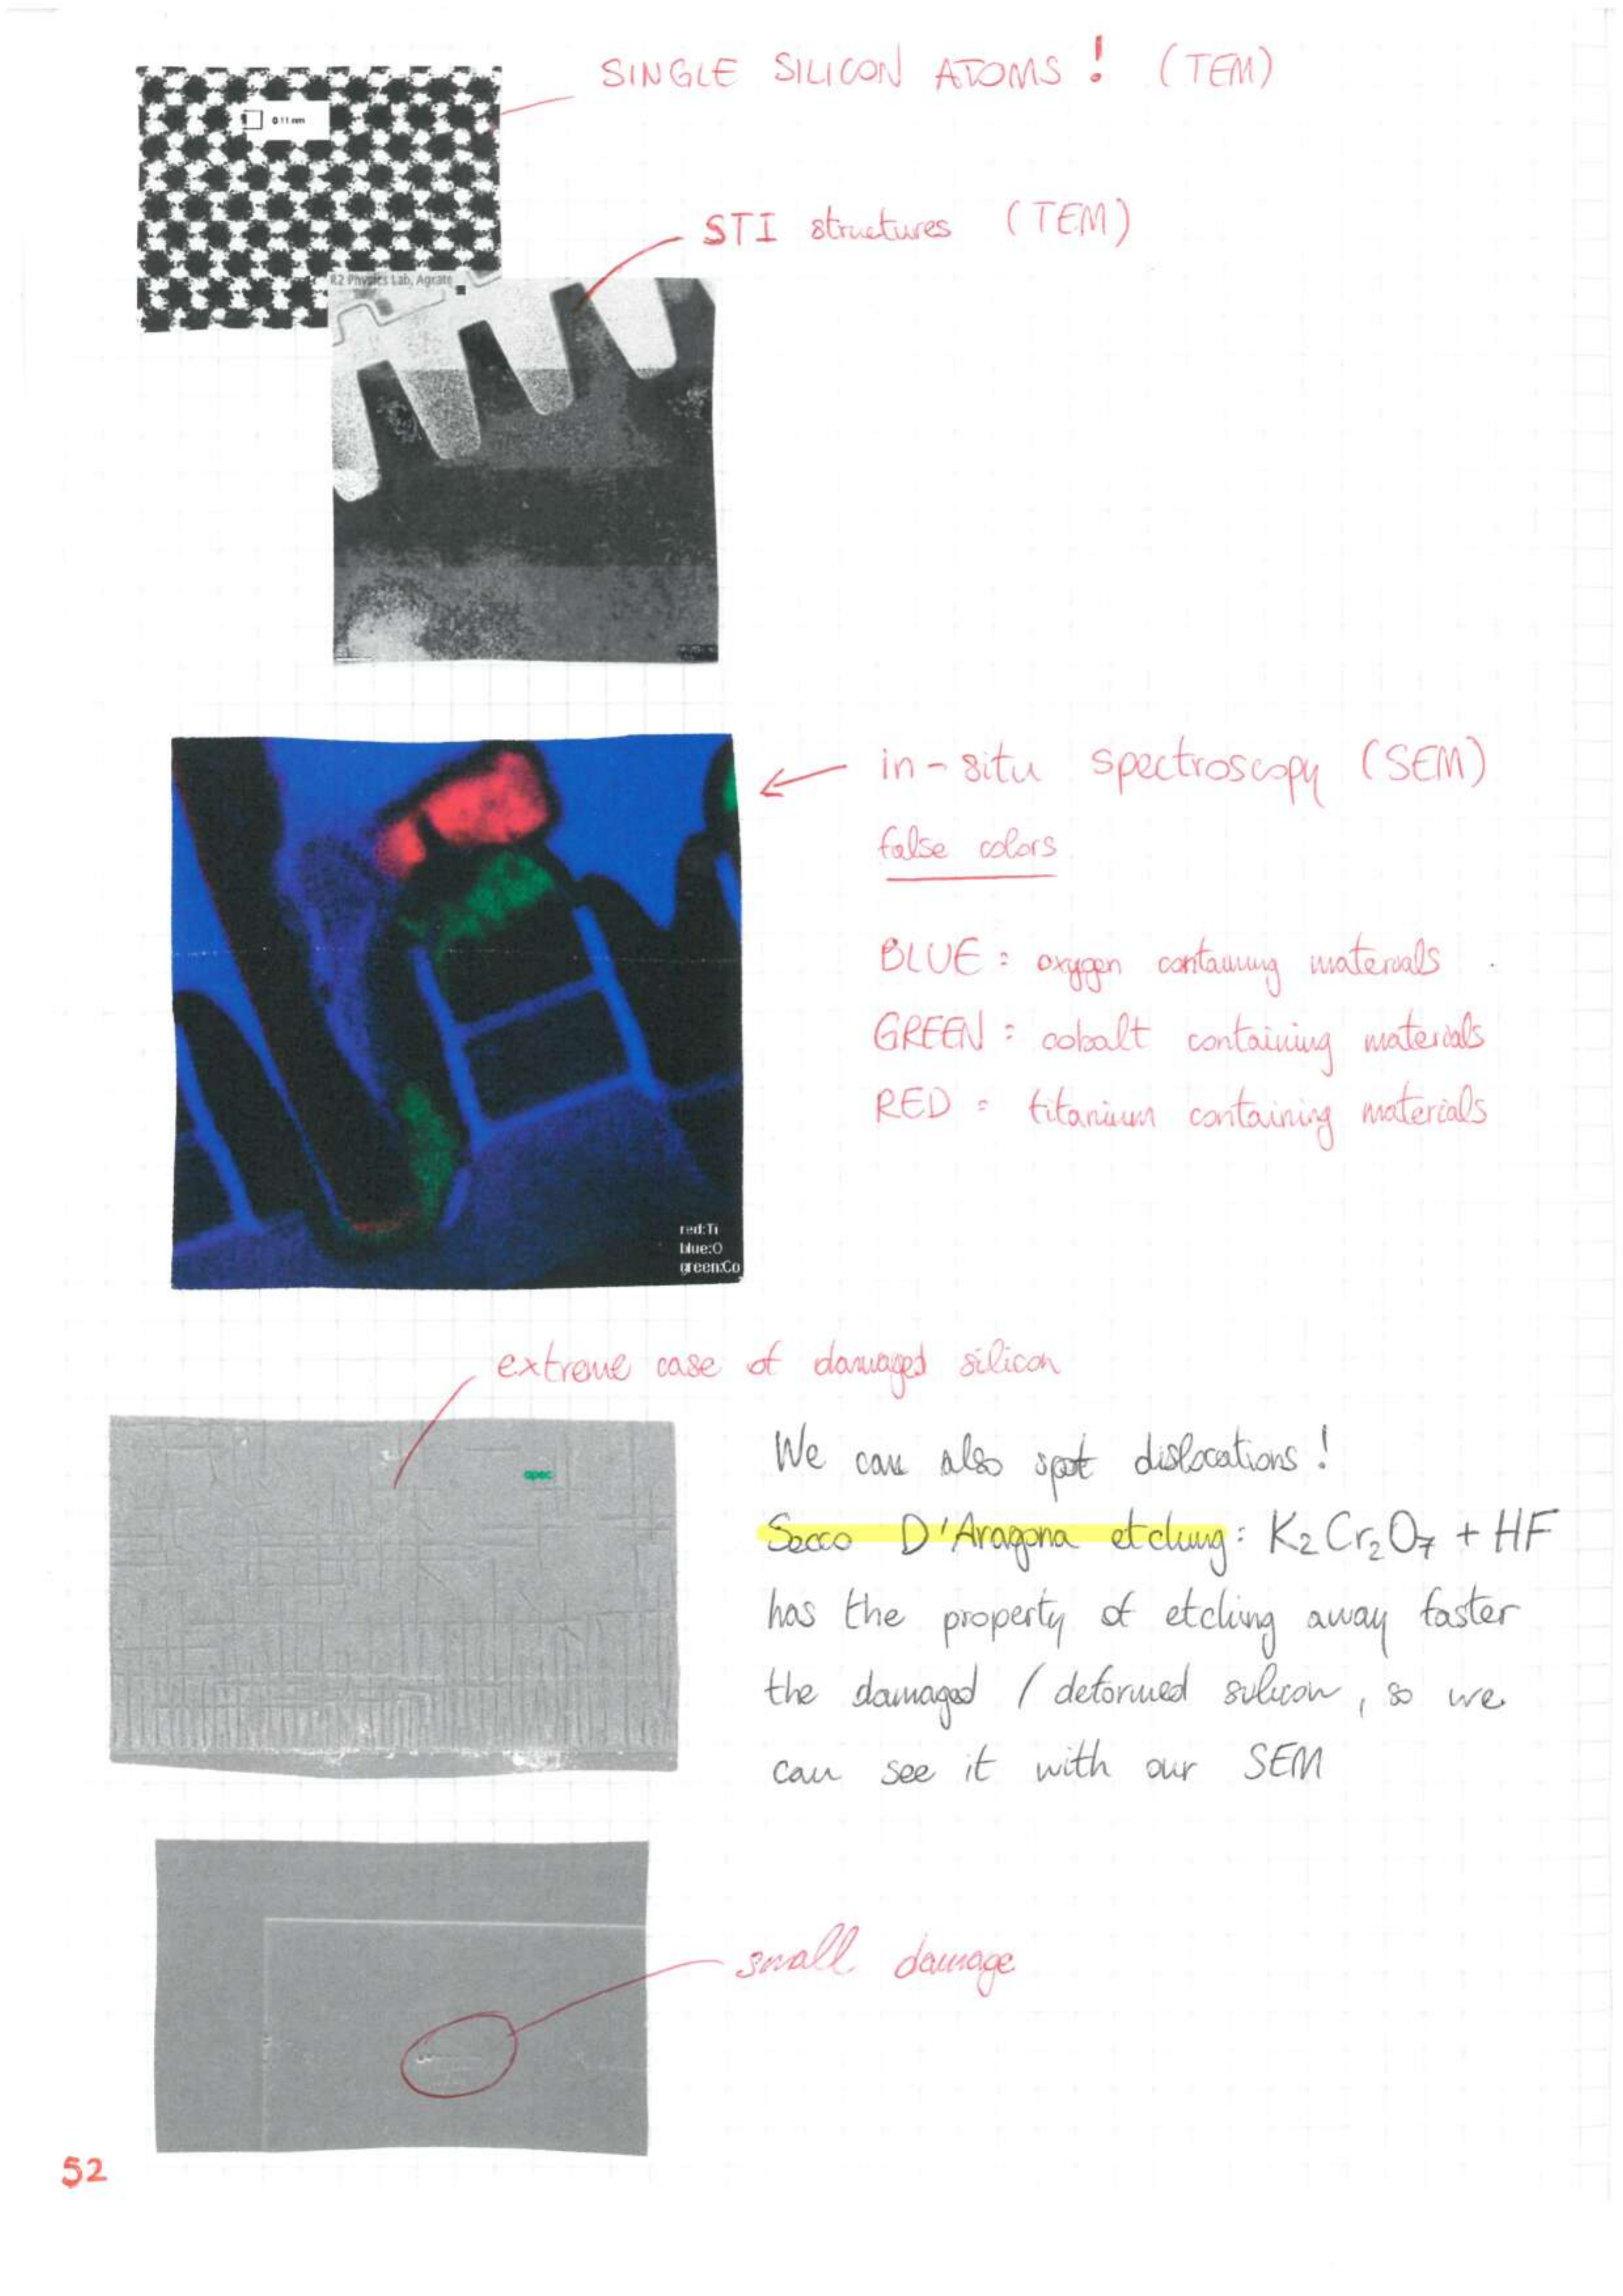 SINGLE SILICON ATOMS! (TEM)
0.11 nm
STI structures (TEM)
R2 Physics Lab, Agrate
in-situ spectroscopy (SEM)
false colors
BLUE: oxygen containing materials
GREEN: cobalt containing materials
RED: titanium containing materials
red:Ti
blue:O
green:Co
extreme case of damaged silicon
We can also spot dislocations!
Secco D'Aragona etching: K₂Cr₂O₇ + HF
has the property of etching away faster
the damaged / deformed silicon, so we
can see it with our SEM
small damage
52